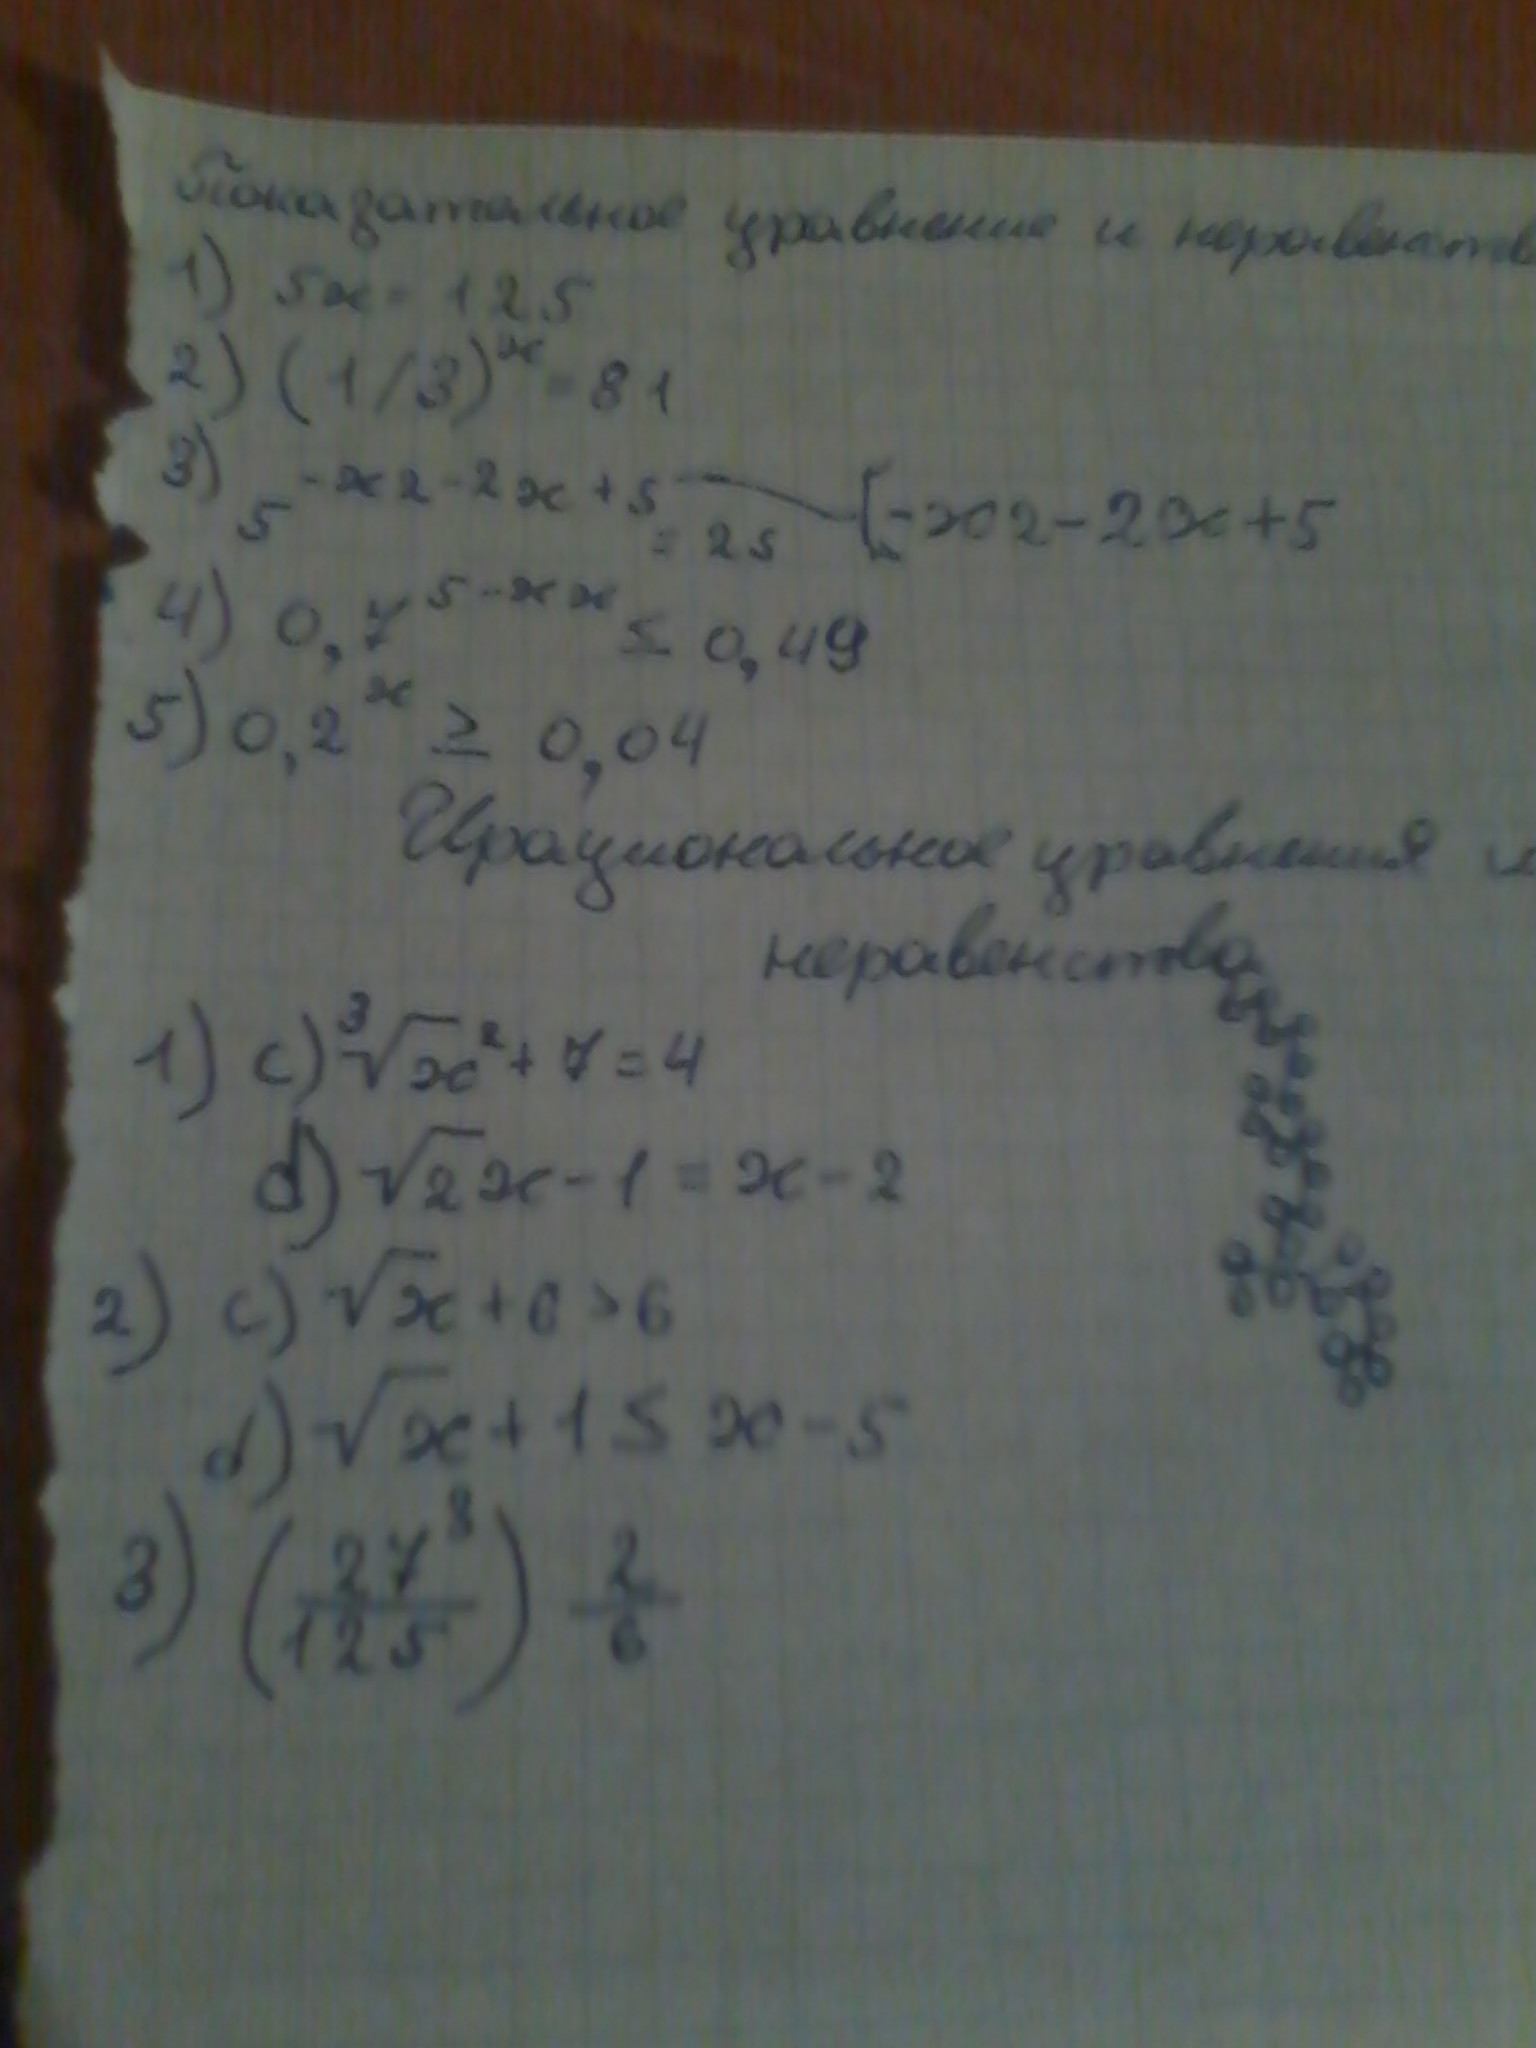 Показательное уравнение и неравенств
1) 5x = 125
2) (1/3)^x = 81
3) 5^-x2-2x+5 = 25 [-x2-2x+5
4) 0,7^5-xx ≤ 0,49
5) 0,2^x ≥ 0,04
Ирациональное уравнения и
неравенства
1) c) ³√x² + 7 = 4
d) √2x - 1 = x - 2
2) c) √x + 6 > 6
d) √x + 1 ≤ x - 5
3) (27^8/125) 2/6